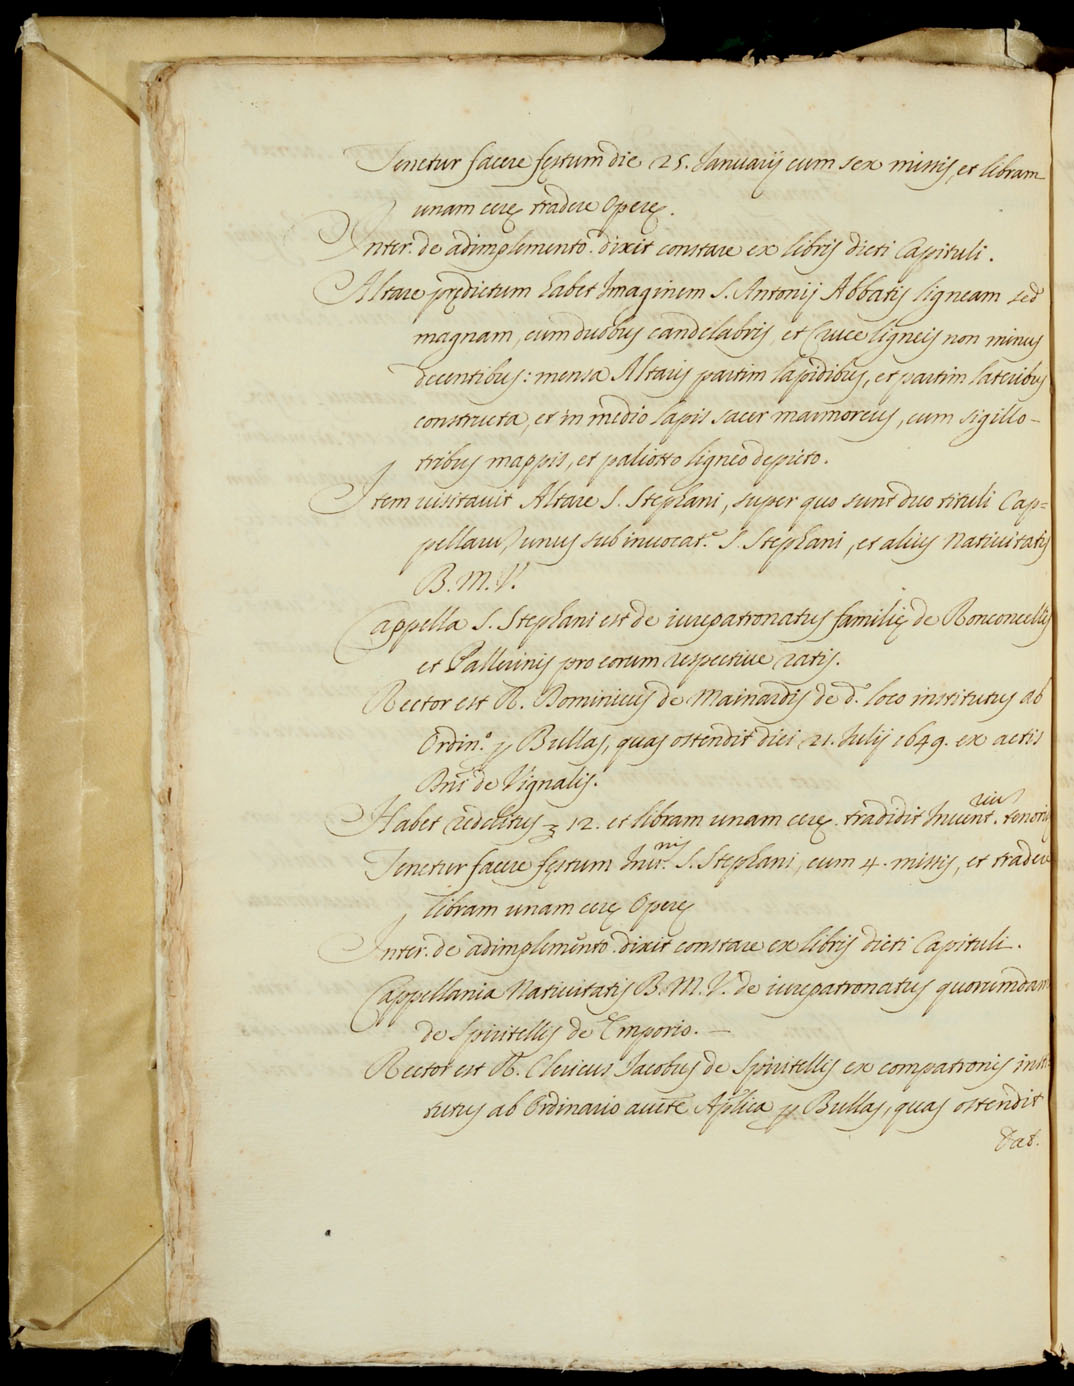 Tenetur facere festum die 25. Januarij cum sex missis, et libram
unam cerę tradere Operę.
Inter. de adimplemento dixit constare ex libris dicti Capituli.
Altare prędictum habet Imaginem S. Antonij Abbatis ligneam sed
magnam, cum duobus candelabris, et Cruce ligneis non minus
decentibus: mensa Altaris partim lapidibus, et partim lateribus
constructa, et in medio lapis sacer marmoreus, cum sigillo
tribus mappis, et paliotto ligneo depicto.
Item visitavit Altare S. Stephani, super quo sunt duo tituli Cap=
pellarū, unus sub invocat.e S. Stephani, et alius Nativitatis
B. M. V.
Cappella S. Stephani est de iurepatronatus familię de Ronconcellis
et Pallerinis pro eorum respective ratis.
Rector est R. Dominicus de Mainardis de d.o loco institutus ab
Ordin.o p Bullas, quas ostendit diei 21. Julij 1649. ex actis
Bni de Vignalis.
Habet redditus 12. et libram unam cerę tradidit Invent.rium tenoris
Tenetur facere festum Inv.nis S. Stephani, cum 4. missis, et tradere
libram unam cerę Operę
Inter. de adimplemento dixit constare ex libris dicti Capituli.
Cappellania Nativitatis B. M. V. de iurepatronatus quorumdam
de Spiritellis de Emporio. —
Rector est R. Clericus Jacobus de Spiritellis ex compatronis insti=
tutus ab Ordinario aucte Aplica p Bullas, quas ostendit
Dat.